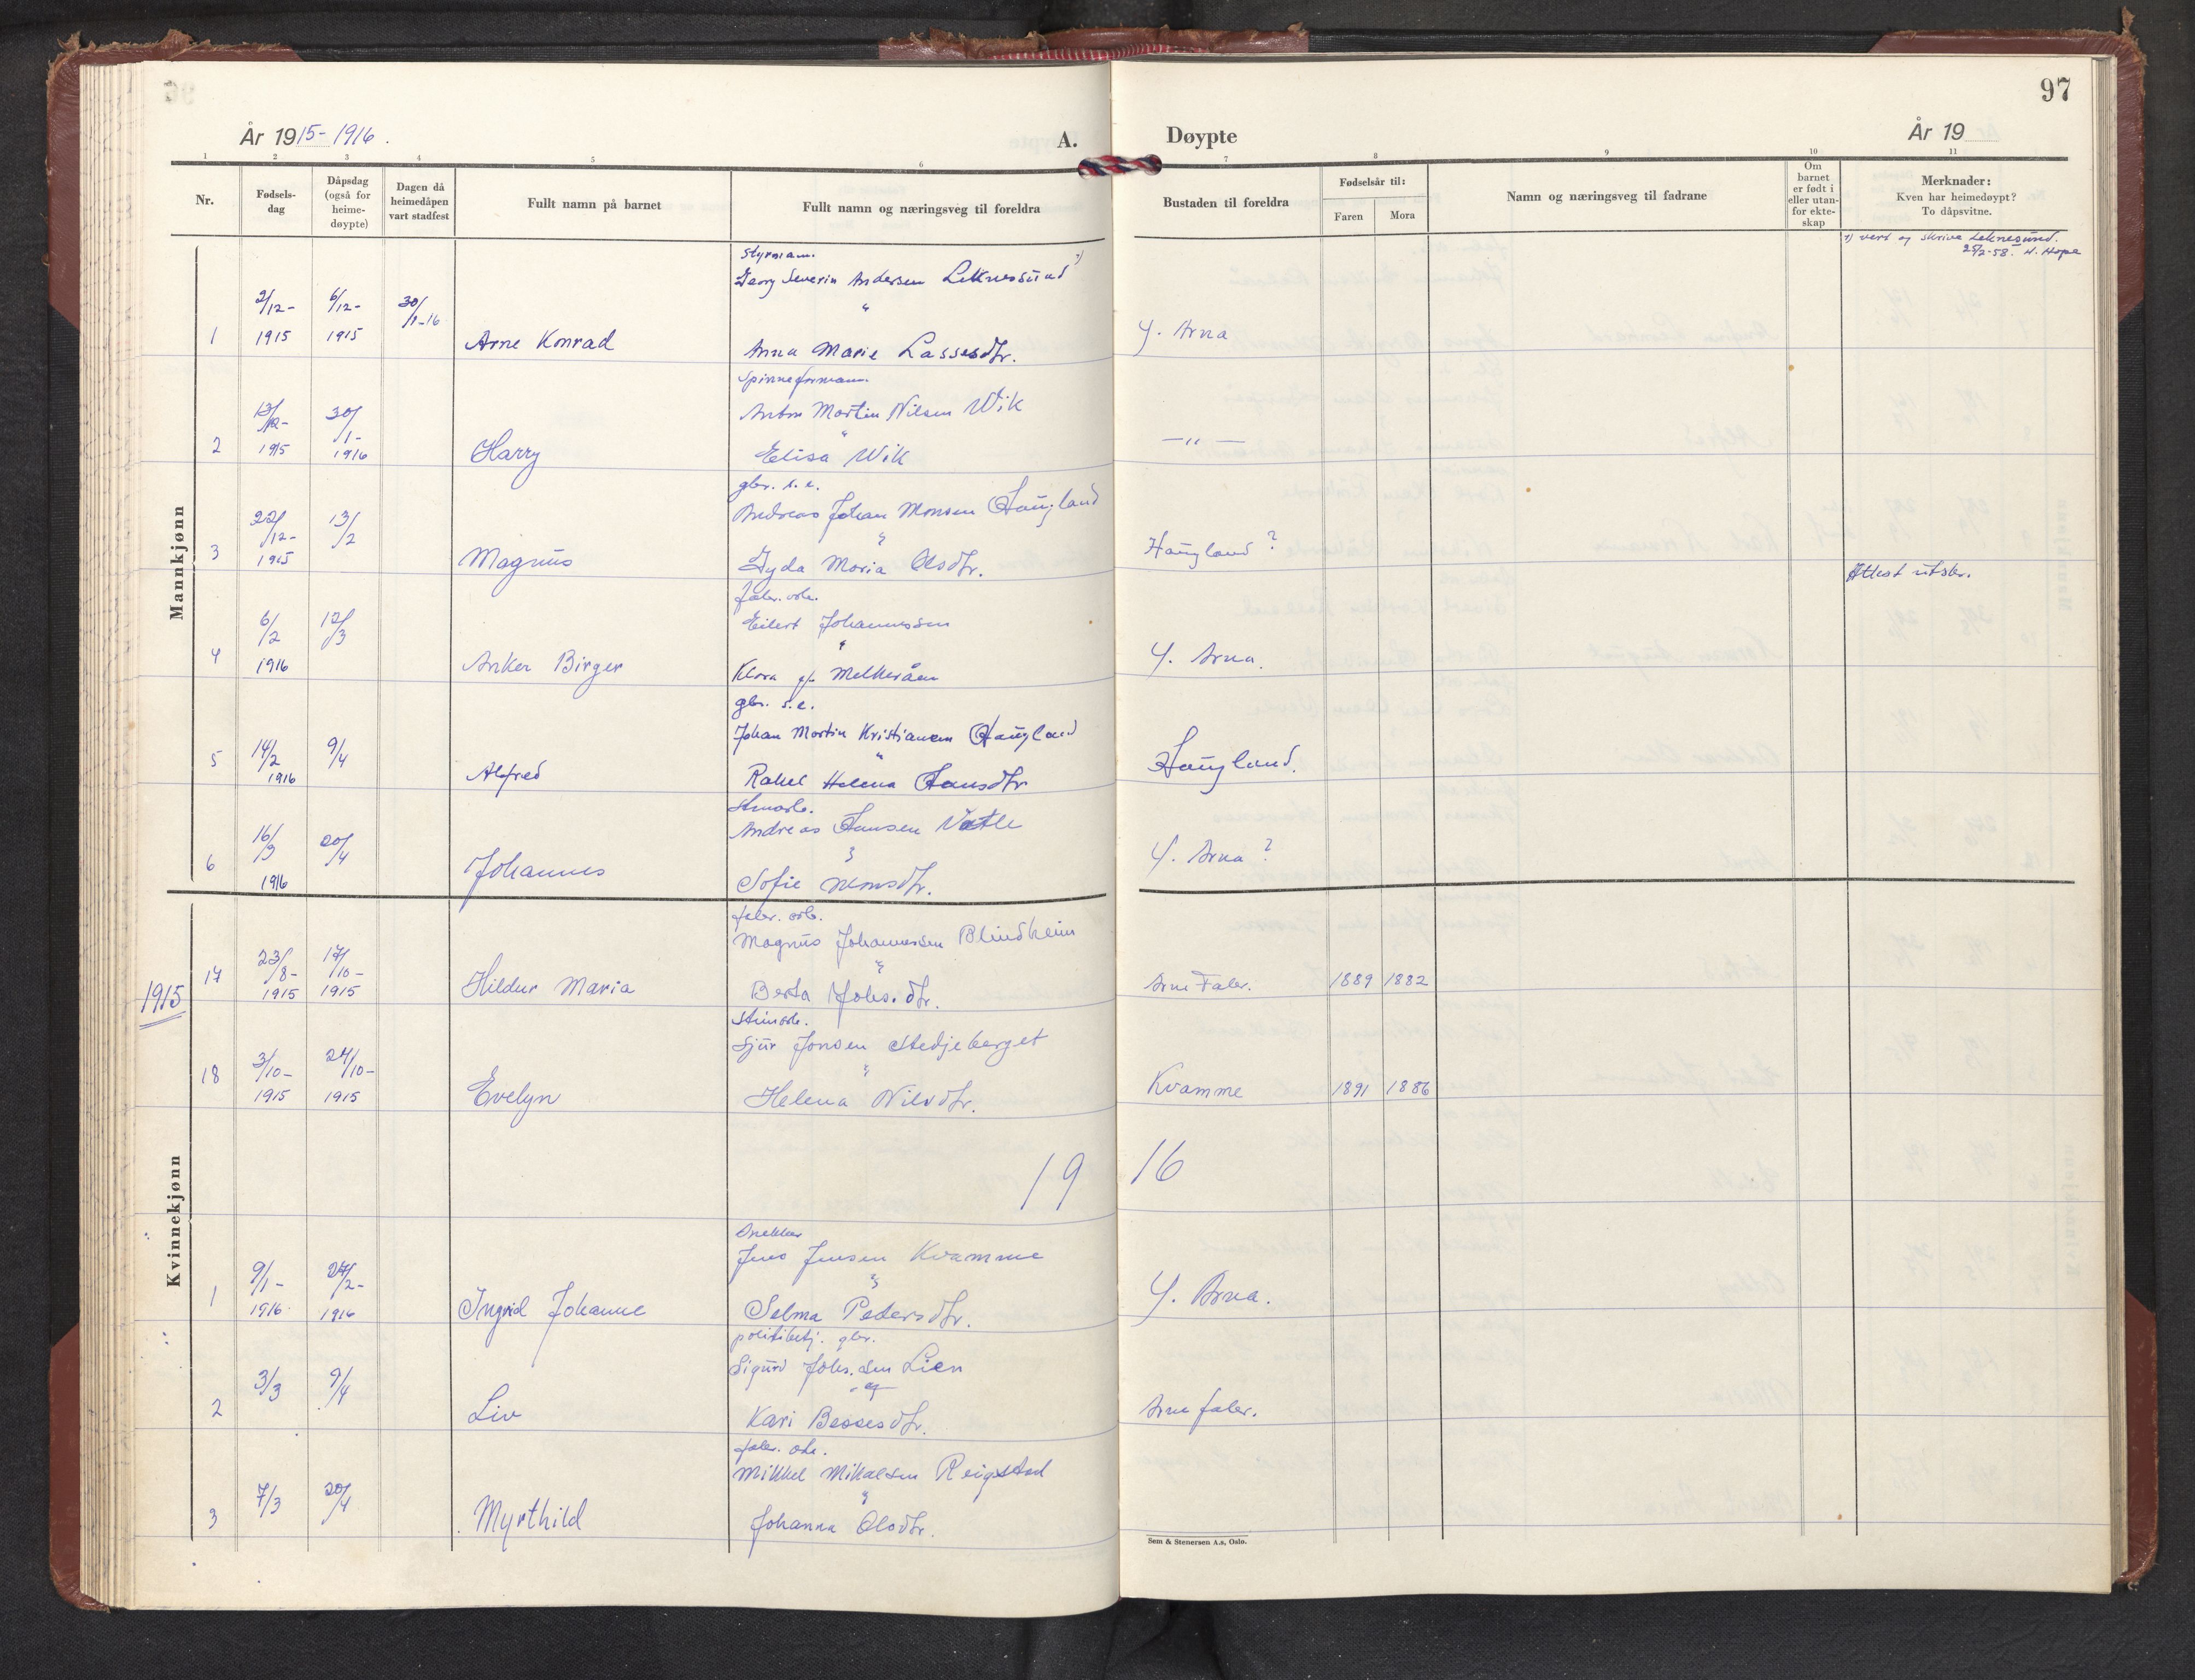 97
År 1915-1916.
A.
Døypte
År 19
1 2 3 4 5 6 7 8 9 10 11
Nr.
Fødsels-
dag
Dåpsdag
(også for
heime-
døypte)
Dagen då
heimedåpen
vart stadfest
Fullt namn på barnet
Fullt namn og næringsveg til foreldra
Bustaden til foreldra
Fødselsår til:
Faren Mora
Namn og næringsveg til fadrane
Om
barnet
er født i
eller utan-
for ekte-
skap
Merknader:
Kven har heimedøypt?
To dåpsvitne.
Mannkjønn
1) vert og skrive Leknesund.
25/2-58. H. Hope
Styrmann.
Georg Severin Andersen Leknessund 1)
"
1 2/12-1915 6/12-1915 30/1-16 Arne Konrad Anna Marie Lassesdtr. Y. Arna
Spinneformann.
Anton Martin Nilsen Wik
"
2 13/12-1915 30/1-1916 Harry Elisa Wik —"—
gbr. s.e.
Andreas Johan Monsen Haugland
"
3 22/12-1915 13/2 Magnus Gyda Maria Olsdtr. Haugland?
Attest utskr.
fabr. arb.
Eilert Johannessen
"
4 6/2 1916 12/3 Anker Birger Klara f. Melkeråen Y. Arna.
gbr. s.e.
Johan Martin Kristiansen Haugland
"
5 14/2 1916 9/4 Alfred Rakel Helena Hansdtr Haugland.
Stenarb.
Andreas Hansen Vatle
"
6 16/3 1916 20/4 Johannes Sofie Monsdtr. Y. Arna?
Kvinnekjønn
1915
fabr. arb.
Magnus Johannessen Blindheim
"
17 23/8-1915 17/10-1915 Hildur Maria Berta Johs.dtr. Arne Fabr. 1889 1882
Steinarb.
Sjur Jonsen Stedjeberget
"
18 3/10-1915 24/10-1915 Evelyn Helena Nilsdtr. Kvamme 1891 1886
19 16
Snekker
Jens Jensen Kvamme
"
1 9/1-1916 27/2-1916 Ingrid Johanne Selma Petersdtr. Y. Arna.
politibetj. gbr.
Sigurd Johs.sen Lien
og
2 3/3 9/4 Liv Kari Bessesdtr. Arne fabr.
fabr. arb.
Mikkel Mikalsen Reigstad
"
3 7/3 20/4 Myrthild Johanna Olsdtr.
Sem & Stenersen A.s, Oslo.